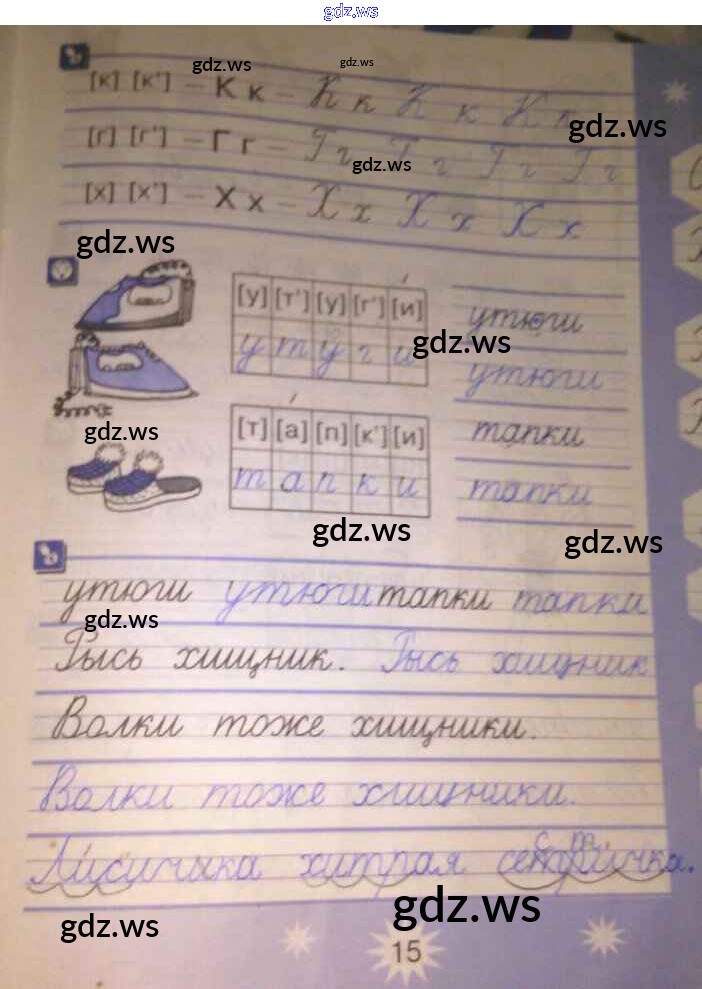 gdz.ws
gdz.ws gdz.ws
[к] [к'] – К к – К к К к К к
gdz.ws
[г] [г'] – Г г – Г г Г г Г г Г г
gdz.ws
[х] [х'] – Х х – Х х Х х Х х
gdz.ws
[у] [т'] [у] [г'] [и] утюги
у т у г и утюги
gdz.ws
gdz.ws
[т] [а] [п] [к'] [и] тапки
т а п к и тапки
gdz.ws
gdz.ws
утюги утюги тапки тапки
gdz.ws
Рысь хищник. Рысь хищник
Волки тоже хищники.
Волки тоже хищники.
Лисичка хитрая
gdz.ws
gdz.ws
15